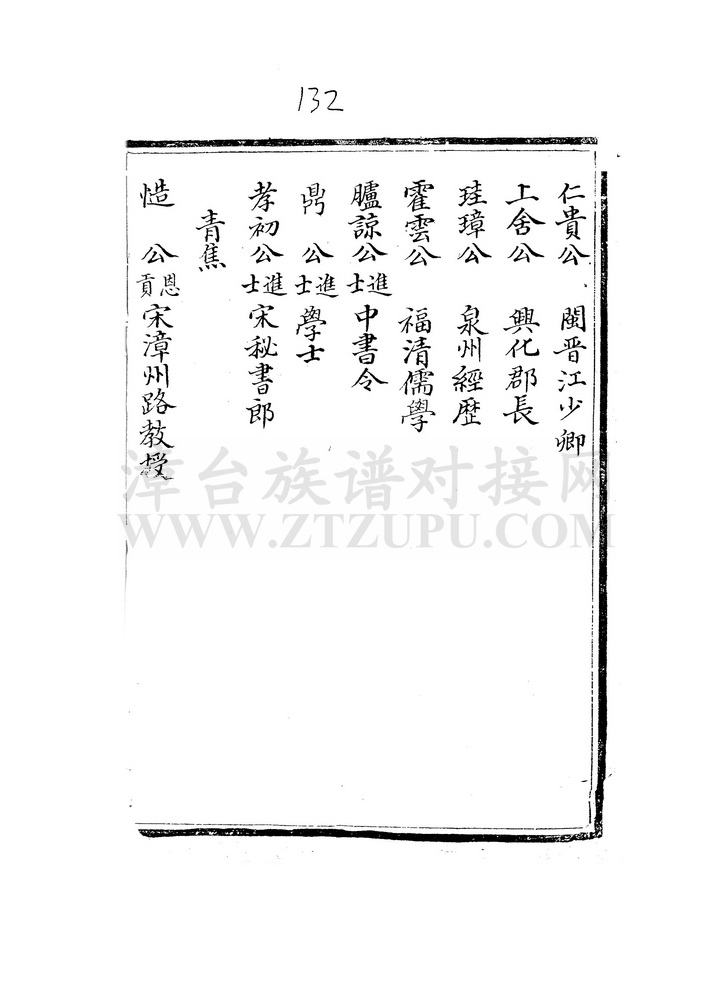 132
仁貴公 閩晋江少卿
上舍公 興化郡長
珪璋公 泉州經歴
霍雲公 福清儒學
臚諒公進士中書令
鹍 公進士學士
孝初公進士宋秘書郎
青焦
慥 公恩貢宋漳州路教授
漳台族谱对接网
WWW.ZTZUPU.COM